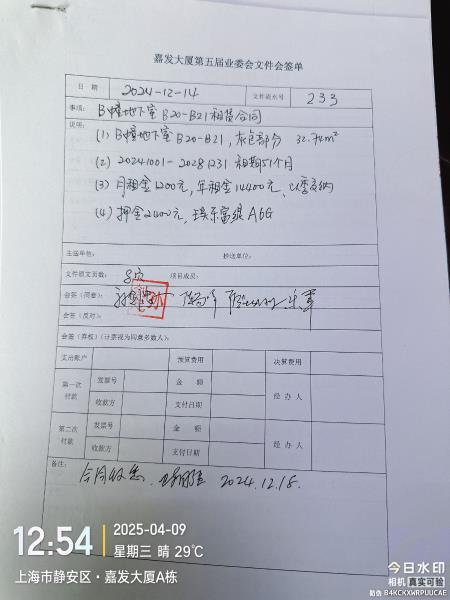 嘉发大厦第五届业委会文件会签单
日 期 2024-12-14 文件流水号 233
事项: B幢地下室B20-B21租赁合同
说明:
(1) B幢地下室B20-B21, 灰色部分 32.74m²
(2) 20241001-20281231 租期51个月
(3) 月租金1200元, 年租金14400元, 以季交纳
(4) 押金2400元, A6G
主送单位: 抄送单位:
文件原文页数: 项目成员:
会签(同意):
会签(反对):
会签(弃权)(计票视为同意多数人):
支出账户 预算费用 决算费用
第一次付款 发票号 金 额 经 办 人
收款方 支付日期
第二次付款 发票号 金 额 经 办 人
收款方 支付日期
备注:
合同收悉. 2024.12.18.
12:54 2025-04-09
星期三 晴 29℃
上海市静安区·嘉发大厦A栋
今日水印
相机 真实可验
防伪 B4KCKXWRPUUCAE